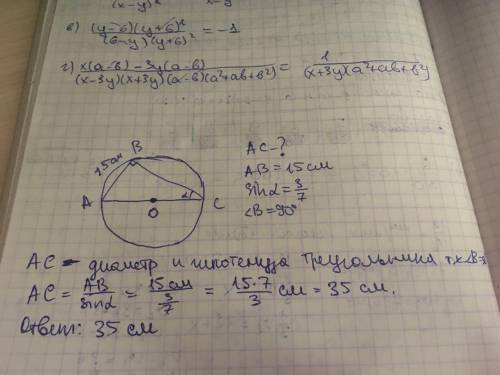 (x-y)² x-y
в) (y-6)(y+6)² / (6-y)(y+6)² = -1
г) x(a-в) - 3y(a-в) / (x-3y)(x+3y)(a-в)(a²+ab+в²) = 1 / (x+3y)(a²+ab+в²)
AC - ?
AB = 15 см
sin α = 3/7
∠B = 90°
15 см
B
A
O
α
C
AC - диаметр и гипотенуза треугольника т.к ∠B=
AC = AB / sin α = 15 см / 3/7 = 15·7 / 3 см = 35 см.
Ответ: 35 см